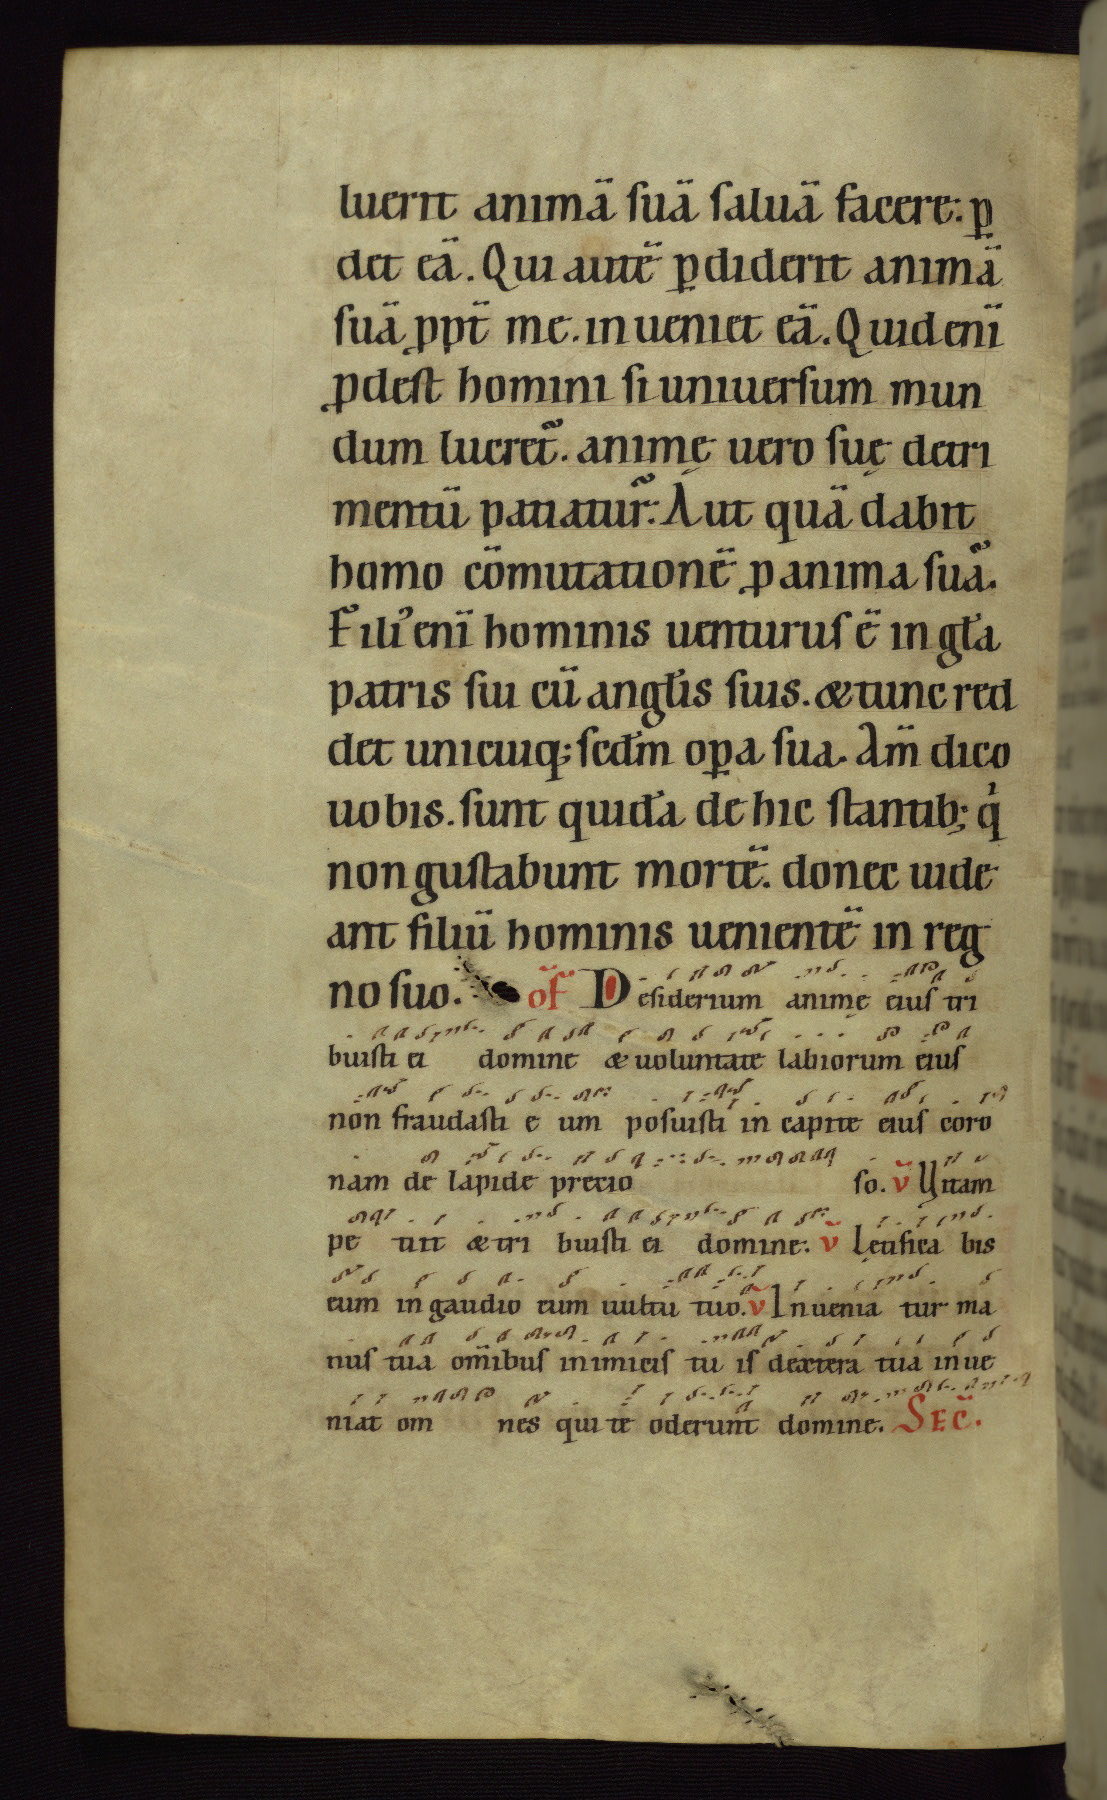 luerit animā ſuā ſaluā facere: ꝑ
det eā. Qui autē ꝑdiderit animā
ſuā ꝓpt̄ me. inueniet eā. Quid enī
ꝓdeſt homini ſi uniuerſum mun
dum lucret᷑. animę uero ſuę detri
mentū patiatur᷑: Aut quā dabit
homo cōmutationē ꝓ anima ſua᷑.
Filiꝰ enī hominis uenturuſ ē in gl̄a
patris ſui cū angl̄is ſuis. & tunc red
det unicuiq; ſcdm̄ oꝑa ſua. Am̄ dico
uobis. ſunt quidā de hic ſtantib; qͥ
non guſtabunt mortē. donec uide
ant filiū hominis uenientē in reg
no ſuo. of̄ Deſiderium animę eiuſ tri
buiſti ei domine & uoluntate labiorum eiuſ
non fraudaſti e um poſuiſti in capite eiuſ coro
nam de lapide precio ſo. v̄ Uitam
pe tiit & tri buiſti ei domine: v̄ Lętifica bis
eum in gaudio cum uultu tuo. v̄ Inuenia tur ma
nuſ tua om̄ibuſ inimiciſ tu iſ dextera tua inue
niat om nes qui te oderunt domine. SEC̄.